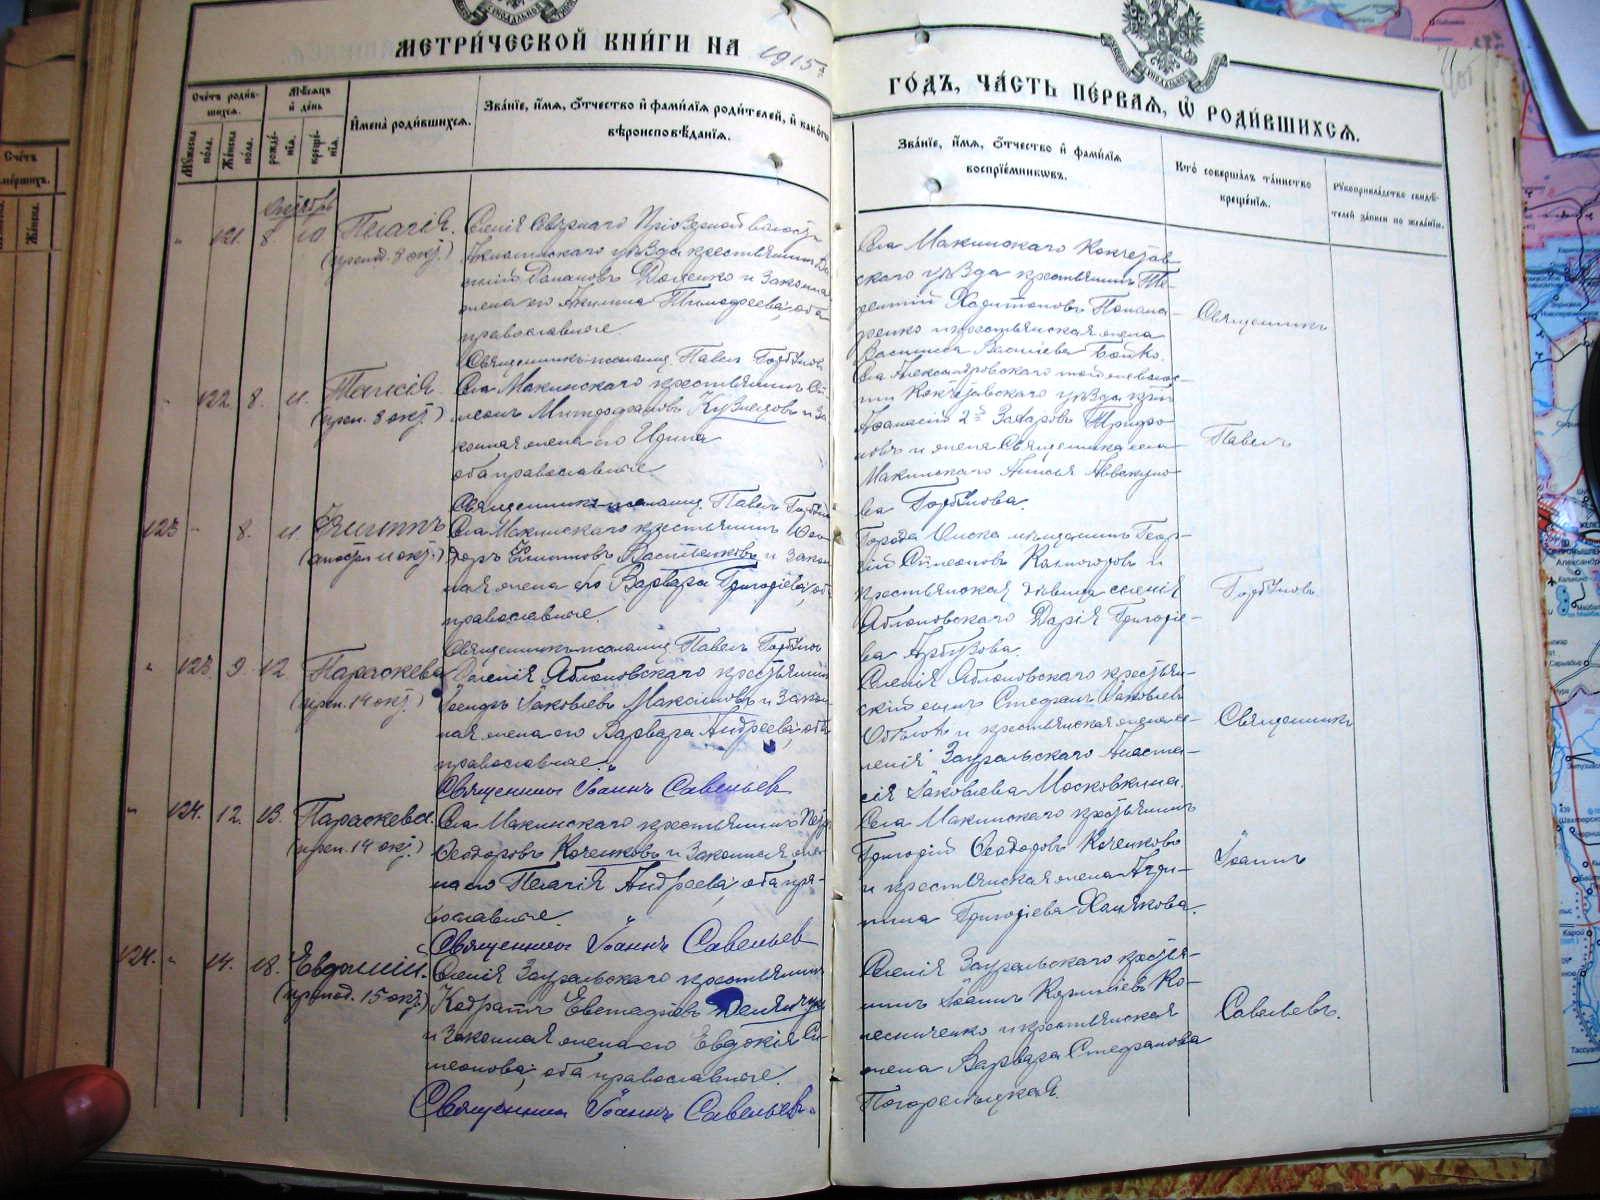 МЕТРИ́ЧЕСКОЙ КНИ́ГИ НА 1915 г.
ГО́ДЪ, ЧА́СТЬ ПЕ́РВАЯ, Ѡ РОДИ́ВШИХСЯ.
Счётъ роди́в-
шихся.
Мѣсяцъ
и де́нь
Имена̀ роди́вшихся.
Зва́ніе, и́мя, ѻ́тчество и фами́лія роди́телей, и како́гѡ
вѣроисповѣ́данія.
Зва́ніе, и́мя, ѻ́тчество и фами́лія
воспріе́мникѡвъ.
Кто̀ соверша́лъ та́инство
креще́нія.
Рукоприкла́дство свидѣ́-
телей за́писи по жела́нію.
Октябрь
121. 8. 10 Пелагія.
(препод. 8 окт.)
Селенія Сѣвернаго Пріозерной волости
Акмолинскаго уѣзда крестьянинъ
Романовъ Доценко и законная
жена его Акилина Тимофеева, оба
православные
Священникъ Павелъ Горбуновъ
Села Макинскаго Кокчетав-
скаго уѣзда крестьянинъ Те-
рентій Харитоновъ Понома-
ренко и крестьянская жена
Василиса Васильева Бойко.
Священникъ
122. 8. 11. Таисія.
(преп. 8 окт.)
Села Макинскаго крестьянинъ Си-
меонъ Митрофановъ Кузнецовъ и за-
конная жена его Ирина
оба православные
Священникъ Павелъ Горбуновъ
Села Александровскаго той же волос-
ти Кокчетавскаго уѣзда кр.
Афанасій 2й Захаровъ Трифо-
новъ и жена Священника села
Макинскаго Анисья
ва Горбунова.
Павелъ
123 - 8. 11. Филиппъ
(апостола 11 окт.)
Села Макинскаго крестьянинъ Іси-
доръ Филипповъ Костенковъ и закон-
ная жена его Варвара Григоріева, оба
православные.
Священникъ Павелъ Горбуновъ
Города Омска мѣщанинъ Геор-
гій Симеоновъ Колмогоровъ и
крестьянская дѣвица селенія
Яблоновскаго Дарія Григоріе-
ва Арбузова.
Горбуновъ.
123. 9. 12. Параскева
(преп. 14 окт.)
Селенія Яблоновскаго крестьянинъ
Іосифъ Іаковлевъ Максимовъ и закон-
ная жена его Варвара Андреева, оба
православные.
Священникъ Іоаннъ Савельевъ
Селенія Яблоновскаго крестьян-
скій сынъ Стефанъ Іаковлевъ
и крестьянская жена се-
ленія Зауральскаго Анаста-
сія Іаковлева Московкина.
Священникъ
124. 12. 13. Параскева.
(преп. 14 окт.)
Села Макинскаго крестьянинъ Петръ
Ѳеодоровъ Коченковъ и законная же-
на его Пелагія Андреева, оба пра-
вославные
Священникъ Іоаннъ Савельевъ
Села Макинскаго крестьянинъ
Григорій Ѳеодоровъ Коченковъ
и крестьянская жена Агри-
пина Григоріева Холякова.
Іоаннъ
124. 14. 18. Евфимій.
(препод. 15 окт.)
Селенія Зауральскаго крестьянинъ
Кодратъ Евстафіевъ
и законная жена его Евдокія Си-
меонова, оба православные.
Священникъ Іоаннъ Савельевъ.
Селенія Зауральскаго крестья-
нинъ Іоаннъ Корниліевъ Ко-
лесниченко и крестьянская
жена Варвара Стефанова
Погорелицкая.
Савельевъ.